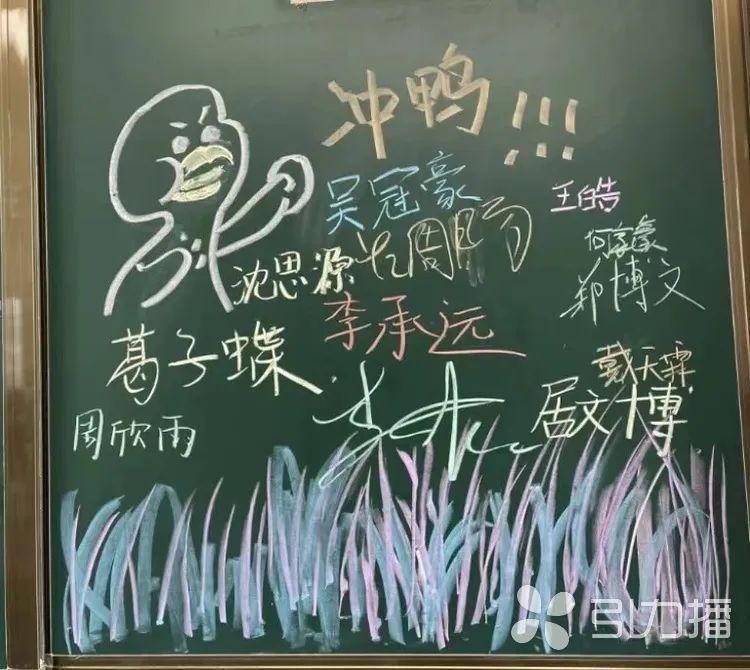 冲鸭!!!
吴冠豪
王皓
何家豪
沈思源
郑博文
李承远
葛子蝶
戴天霖
居文博
周欣雨
引力播